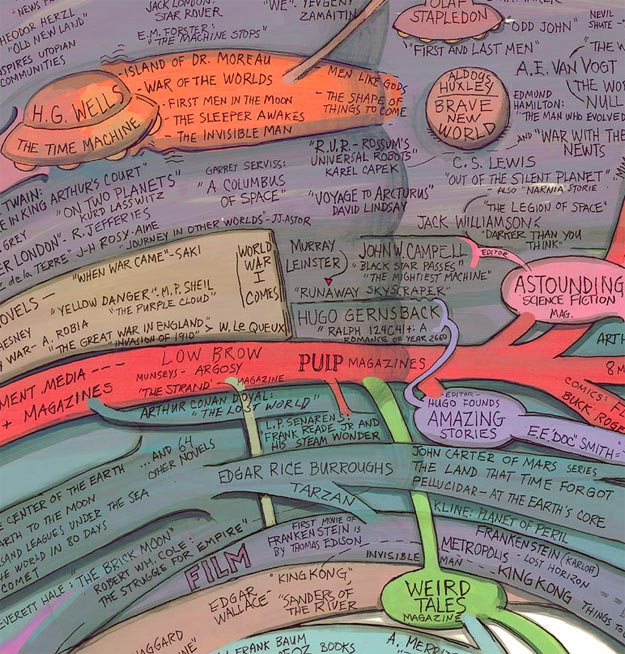 JACK LONDON:
STAR ROVER
"WE". YEVGENY
ZAMAITIN
OLAF
STAPLEDON
"ODD JOHN"
NEVIL
SHUTE -
THEODOR HERZL
"OLD NEW LAND"
INSPIRES UTOPIAN
COMMUNITIES
E.M. FORSTER:
"THE MACHINE STOPS"
"FIRST AND LAST MEN"
A.E. VAN VOGT
NULL
H.G. WELLS
THE TIME MACHINE
- ISLAND OF DR. MOREAU
- WAR OF THE WORLDS
- FIRST MEN IN THE MOON
- THE SLEEPER AWAKES
- THE INVISIBLE MAN
MEN LIKE GODS
- THE SHAPE OF
THINGS TO COME
ALDOUS
HUXLEY
BRAVE
NEW
WORLD
EDMUND
HAMILTON:
"THE MAN WHO EVOLVED
AND "WAR WITH THE
NEWTS
"R.U.R.- ROSSUM'S
UNIVERSAL ROBOTS"
KAREL CAPEK
C.S. LEWIS
"OUT OF THE SILENT PLANET"
- ALSO "NARNIA STORIE
TWAIN:
IN KING ARTHUR'S COURT"
GREY
"ON TWO PLANETS"
KURD LASSWITZ
GARRET SERVISS:
"A COLUMBUS
OF SPACE"
"VOYAGE TO ARCTURUS"
DAVID LINDSAY
"THE LEGION OF SPACE"
JACK WILLIAMSON
"DARKER THAN YOU
THINK"
LONDER LONDON"- R. JEFFERIES
de la TERRE" J-H ROSY-AINE
"JOURNEY IN OTHER WORLDS"-JJ. ASTOR
"WHEN WAR CAME"-SAKI
WORLD
WAR
I
COMES
MURRAY
LEINSTER
"RUNAWAY SKYSCRAPER"
JOHN W. CAMPELL
"BLACK STAR PASSES"
"THE MIGHTIEST MACHINE"
EDITOR
ASTOUNDING
SCIENCE FICTION
MAG.
NOVELS -
"YELLOW DANGER"- M.P. SHEIL
"THE PURPLE CLOUD"
CHESNEY
WAR- A. ROBIA
"THE GREAT WAR IN ENGLAND"
"INVASION OF 1910"
> W. LE QUEUX
HUGO GERNSBACK
"RALPH 124C41+: A
ROMANCE OF YEAR 2660
MENT MEDIA ---
+ MAGAZINES
LOW BROW
MUNSEYS - ARGOSY
'THE STRAND' - MAGAZINE
PULP MAGAZINES
COMICS: F
BUCK ROGE
ARTHUR CONAN DOYAL:
"THE LOST WORLD"
L.P. SENARENS:
FRANK READE JR AND
HIS STEAM WONDER
- EDITOR -
HUGO FOUNDS
AMAZING
STORIES
E.E. "DOC" SMITH:
CENTER OF THE EARTH
EARTH TO THE MOON
LEAGUES UNDER THE SEA
THE WORLD IN 80 DAYS
COMET
...AND 64
OTHER NOVELS
EDGAR RICE BURROUGHS
TARZAN
JOHN CARTER OF MARS SERIES
THE LAND THAT TIME FORGOT
PELLUCIDAR- AT THE EARTH'S CORE
KLINE: PLANET OF PERIL
EVERETT HALE: "THE BRICK MOON"
ROBERT WM. COLE:
"THE STRUGGLE FOR EMPIRE"
FILM
FIRST MOVIE OF
FRANKENSTEIN IS
BY THOMAS EDISON
INVISIBLE MAN
FRANKENSTEIN (KARLOFF)
METROPOLIS - LOST HORIZON -
KING KONG
THINGS TO
EDGAR
WALLACE -
"KING KONG",
"SANDERS OF
THE RIVER
WEIRD
TALES
MAGAZINE
HAGGARD
FRANK BAUM
OZ BOOKS
A. MERRI